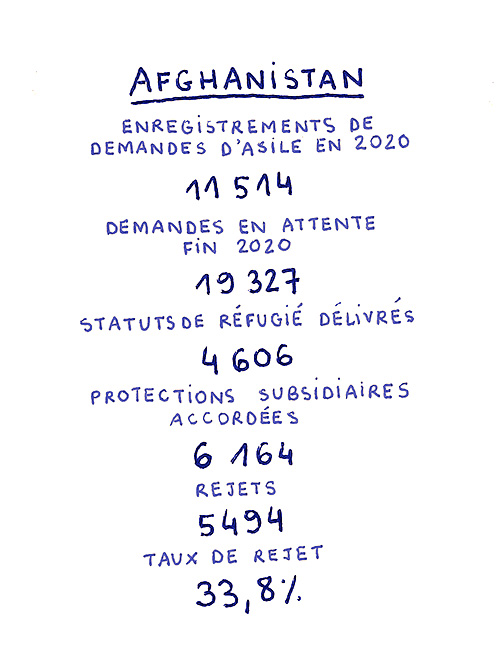 AFGHANISTAN
ENREGISTREMENTS DE
DEMANDES D'ASILE EN 2020
11 514
DEMANDES EN ATTENTE
FIN 2020
19 327
STATUTS DE RÉFUGIÉ DÉLIVRÉS
4 606
PROTECTIONS SUBSIDIAIRES
ACCORDÉES
6 164
REJETS
5494
TAUX DE REJET
33,8%